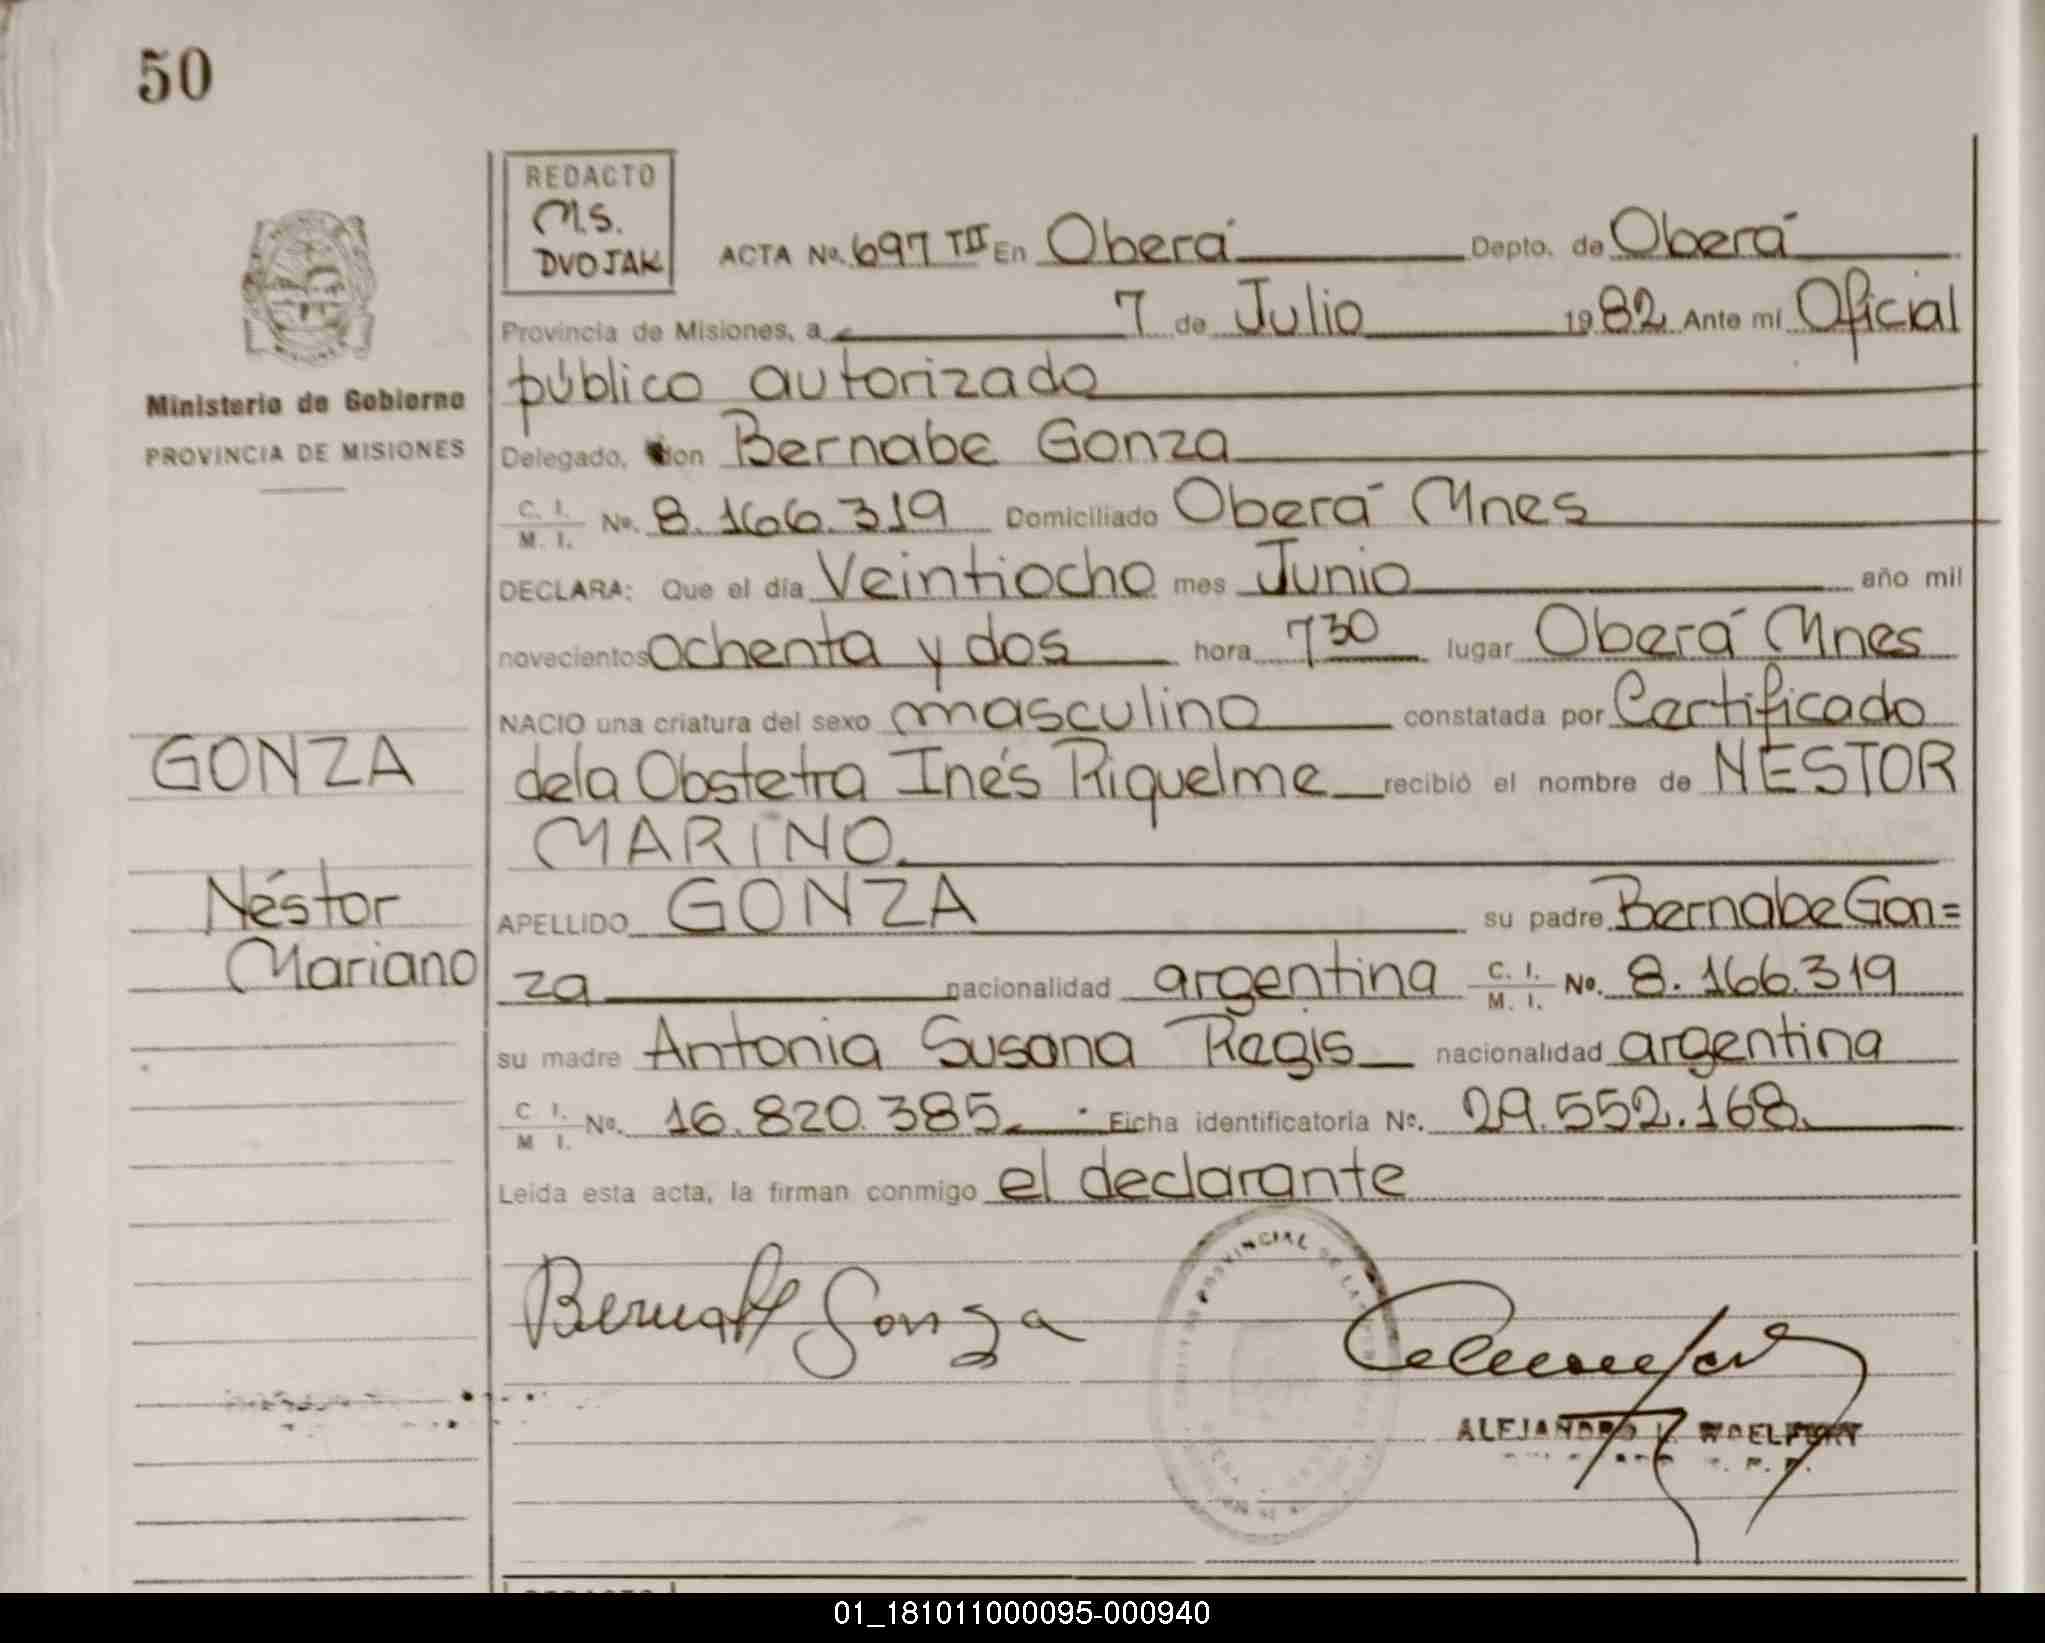 50
REDACTO
M.S.
DVOJAK
ACTA No. 697 TII En Oberá Depto. de Oberá
Provincia de Misiones, a 7 de Julio 1982 Ante mí Oficial
público autorizado
Ministerio de Gobierno
PROVINCIA DE MISIONES
Delegado, don Bernabe Gonza
C. I. / M. I. No. 8.166.319 Domiciliado Oberá Mnes
DECLARA: Que el día Veintiocho mes Junio año mil
novecientos ochenta y dos hora 7 30 lugar Oberá Mnes
NACIO una criatura del sexo masculino constatada por Certificado
GONZA
dela Obstetra Inés Riquelme recibió el nombre de NESTOR
MARINO
Néstor
Mariano
APELLIDO GONZA su padre Bernabe Gon=
za nacionalidad argentina C. I. / M. I. No. 8.166.319
su madre Antonia Susana Regis nacionalidad argentina
C I. / M I. No. 16.820.385. Ficha identificatoria No. 29.552.168.
Leída esta acta, la firman conmigo el declarante
Bernabe Gonza
PROVINCIAL DE LAS
ALEJANDRO
01_181011000095-000940